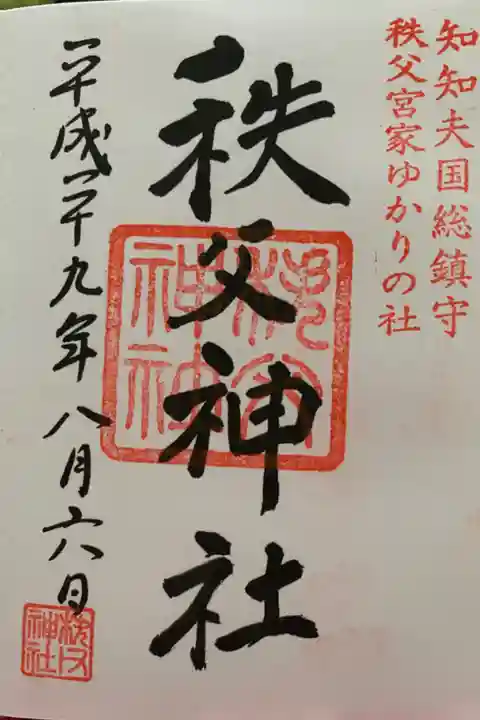 知知夫国総鎮守
秩父宮家ゆかりの社
秩父神社
平成二十九年八月六日
秩父神社
秩父神社